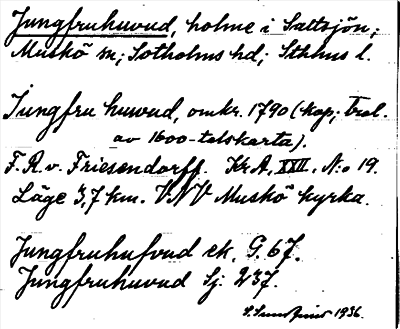 Jungfruhuvud, holme i Saltsjön;
Muskö sn; Sotholms hd; Sthlms l.
Jungfru huvud, omkr. 1790 (kop; trol.
av 1600-talskarta).
F. R. v. Friesendorff. Kr A, XXII, N:o 19.
Läge 3,7 km. VNV Muskö kyrka.
Jungfruhufvud ek. G. 67.
Jungfruhuvud Sj: 237.
1936.